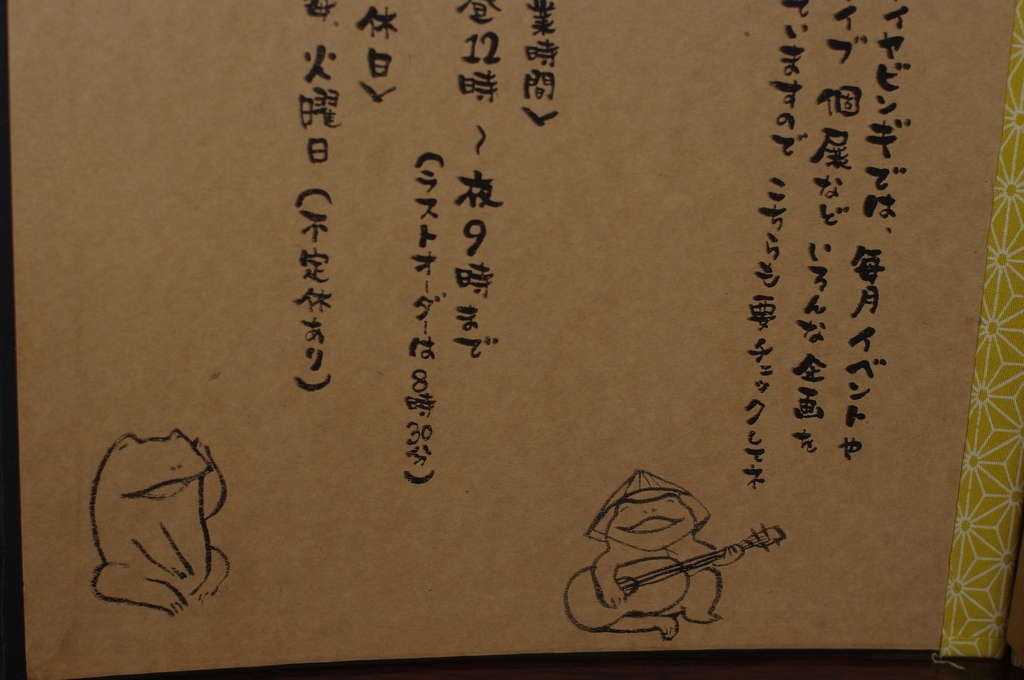 イヤビンギでは、毎月イベントや
イブ 個展など いろんな企画を
ていますので こちらも要チェックしてネ
業時間〉
昼12時 〜 夜9時まで
(ラストオーダーは8時30分)
休日〉
毎 火曜日 (不定休あり)